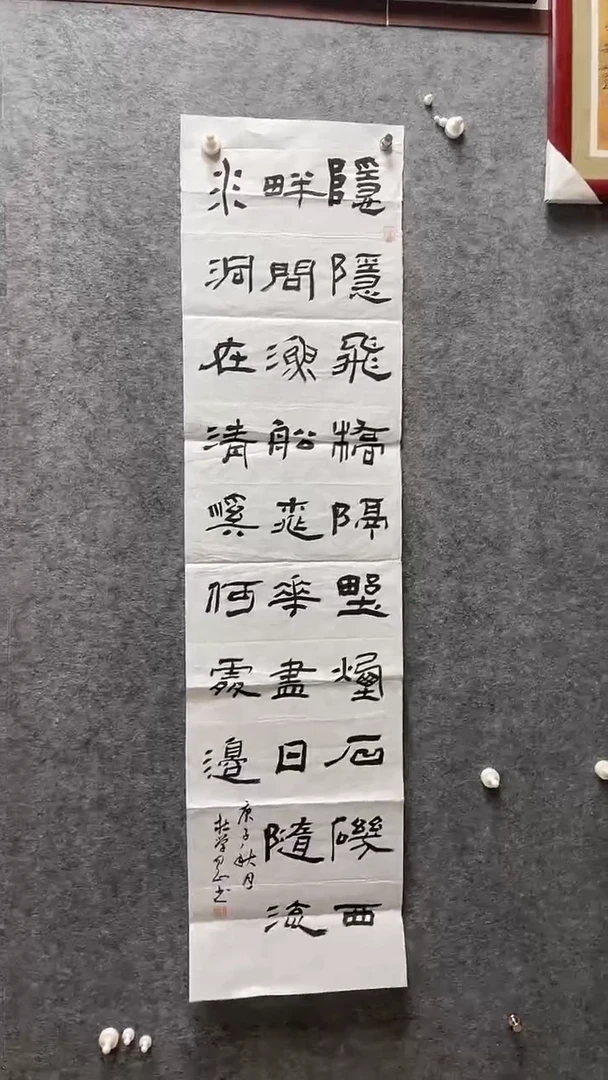 隱隱飛橋隔野煙石磯西
畔問漁船桃花盡日隨流
水洞在清溪何處邊
庚子秋月
杜学书